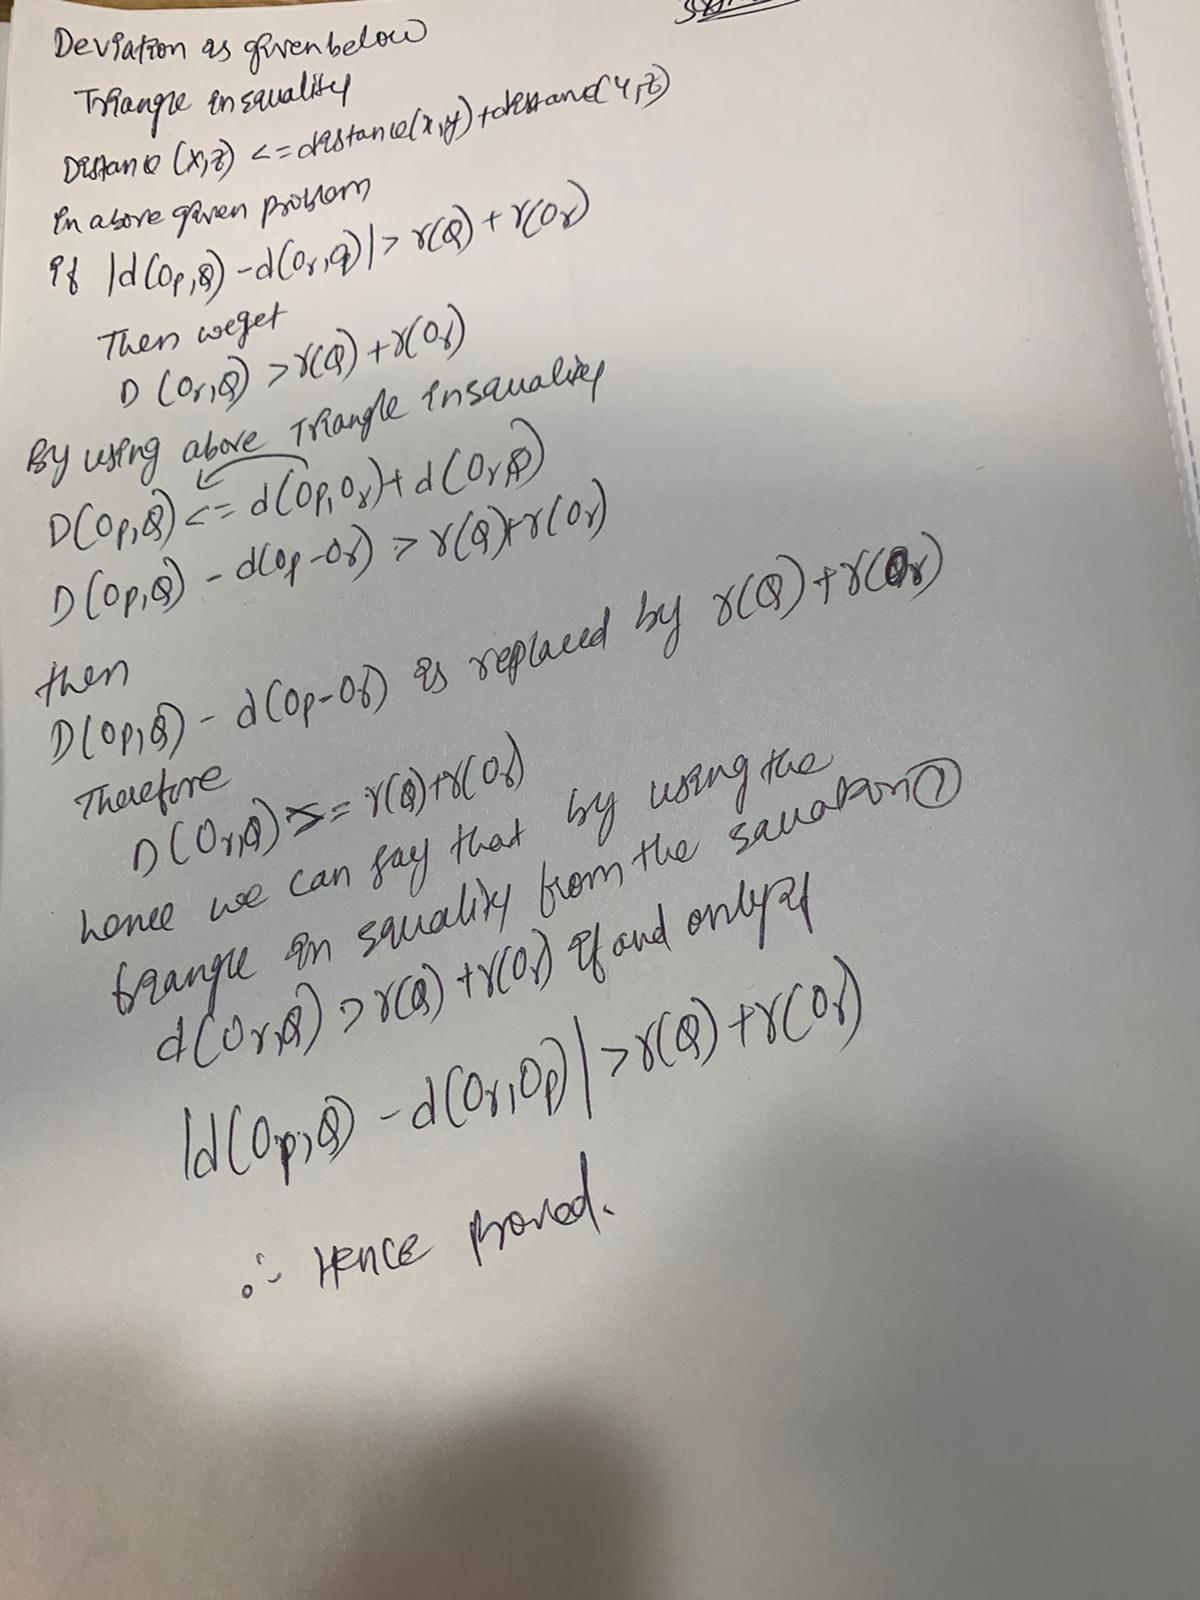 Deviation as given below
Triangle inequality
Distance (x,z) <= distance(x,y)+distance(y,z)
in above given problem
if |d(Op,Q) -d(Or,Q)| > r(Q) + r(Or)
Then we get
D (Or,Q) > r(Q) + r(Or)
By using above Triangle inequality
D(Op,Q) <= d(Op,Or)+ d(Or,Q)
D(Op,Q) - d(Op-Or) > r(Q)+r(Or)
then
D(Op,Q) - d(Op-Or) is replaced by r(Q)+r(Or)
Therefore
D(Or,Q) >= r(Q)+r(Or)
hence we can say that by using the
triangle in equality from the equation ①
d(Or,Q) > r(Q) + r(Or) if and only if
|d(Op,Q) - d(Or,Op)| > r(Q) + r(Or)
∴ Hence proved.